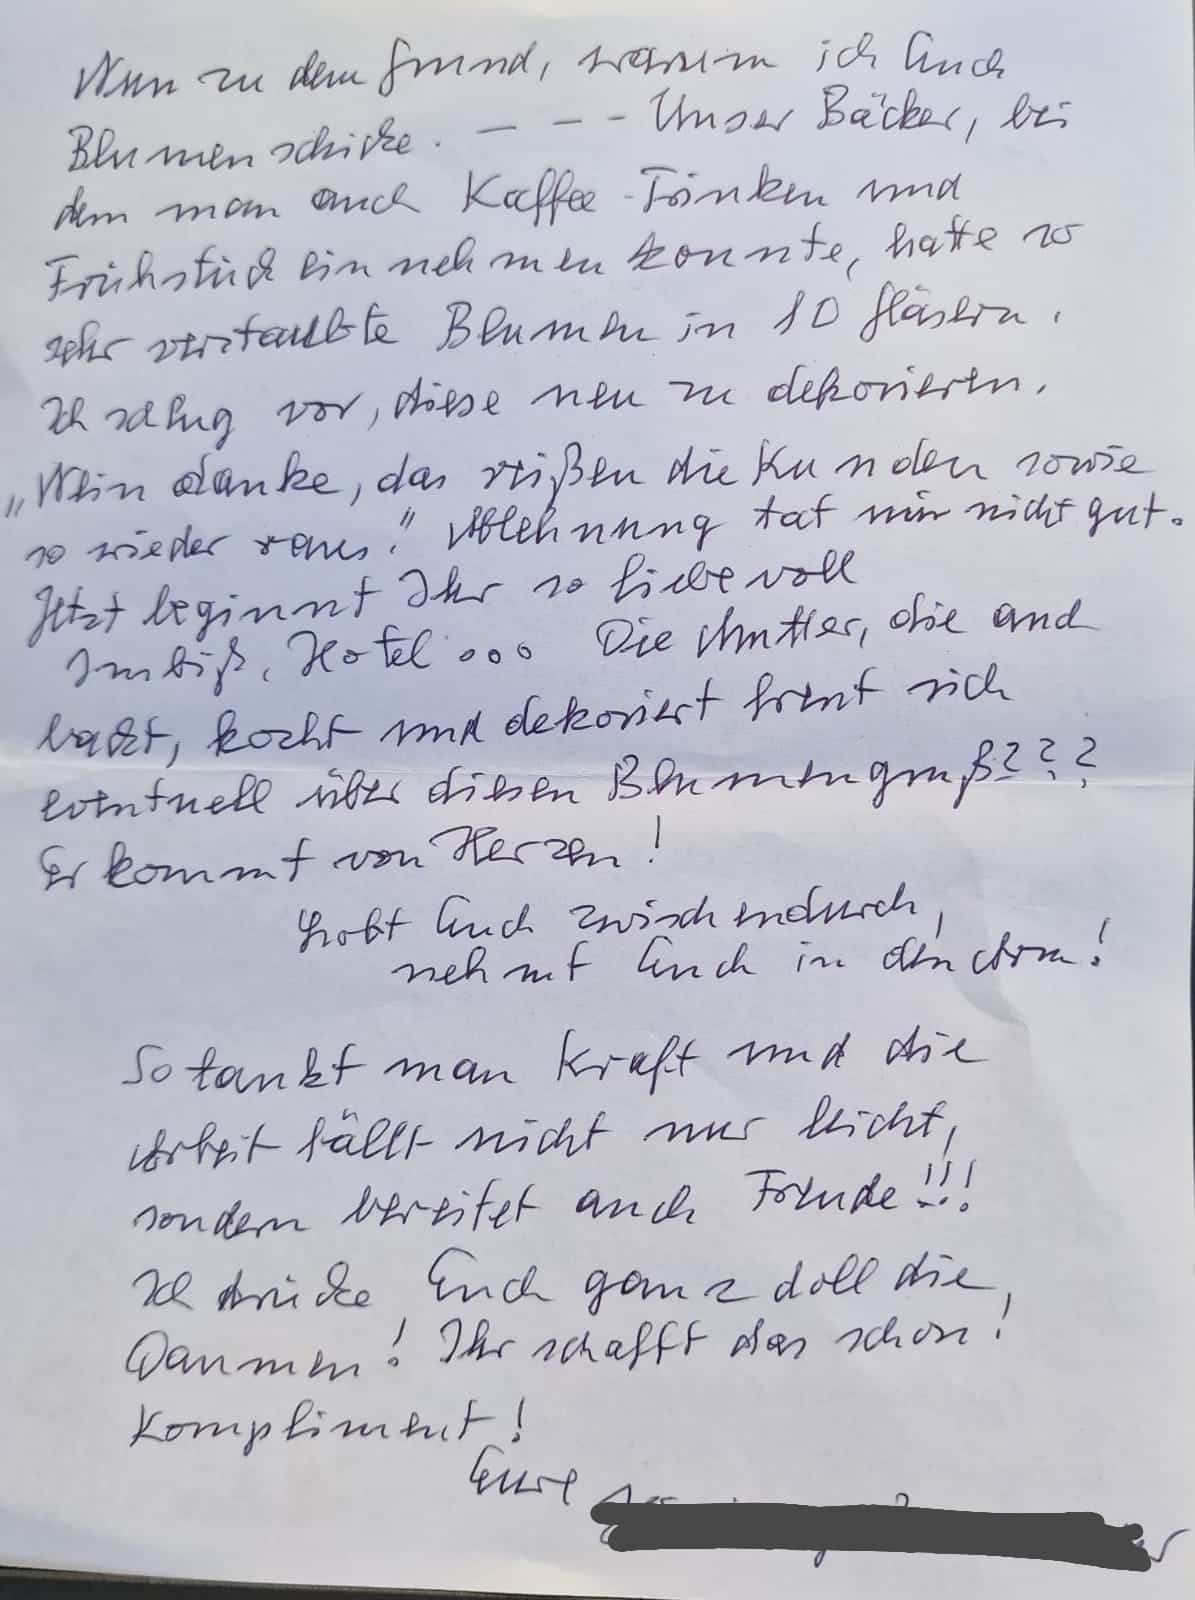 Nun zu dem Grund, warum ich Euch
Blumen schicke. — – – Unser Bäcker, bei
dem man auch Kaffee-Trinken und
Frühstück einnehmen konnte, hatte so
sehr verstaubte Blumen in 10 Gläsern.
Ich schlug vor, diese neu zu dekorieren.
„Nein danke, das reißen die Kunden sowie
so wieder raus!" Ablehnung tat mir nicht gut.
Jetzt beginnt Ihr so liebevoll
Imbiß, Hotel ... Die Mutter, die auch
backt, kocht und dekoriert freut sich
eventuell über diesen Blumengruß???
Er kommt von Herzen!
Lobt Euch zwischendurch,
nehmt Euch in den Arm!
So tankt man Kraft und die
Arbeit fällt nicht nur leicht,
sondern bereitet auch Freude!!!
Ich drücke Euch ganz doll die
Daumen! Ihr schafft das schon!
Kompliment!
Eure